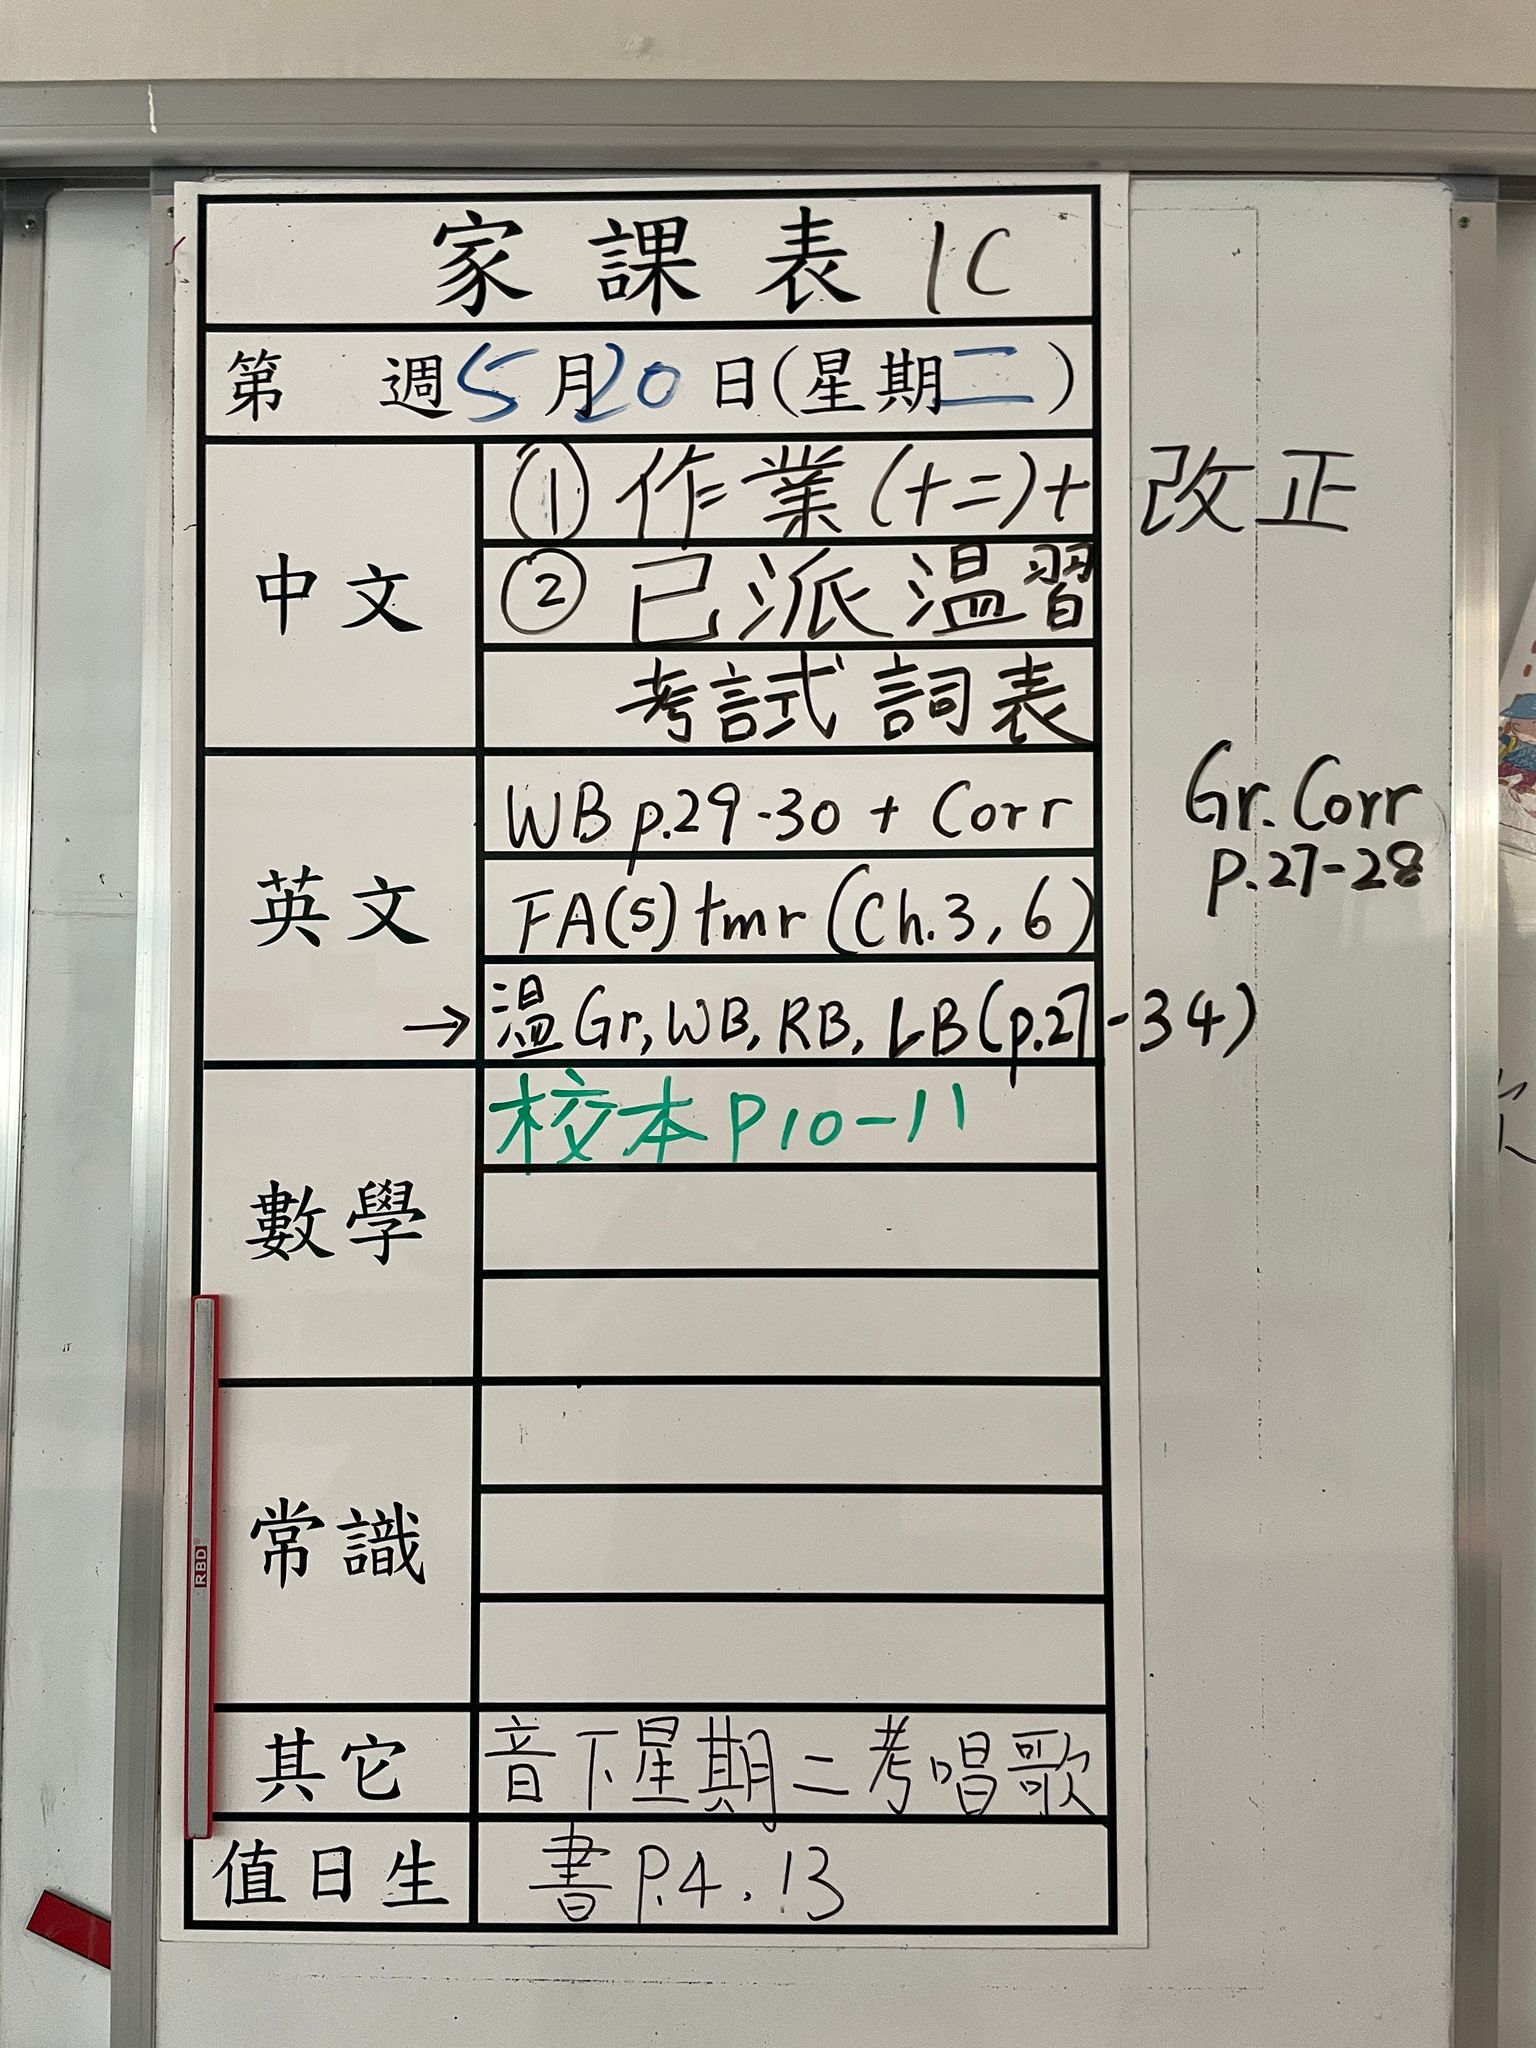 家課表 1C
第 週 5月20日(星期二)
中文
① 作業(十二)+ 改正
② 已派溫習
考試詞表
英文
WB p.29-30 + Corr
Gr. Corr
p.27-28
FA(5) tmr (Ch.3, 6)
→ 溫 Gr, WB, RB, LB (p.27-34)
數學
校本 P10-11
常識
其它
音下星期二考唱歌
值日生
書 P.4, 13
RBD